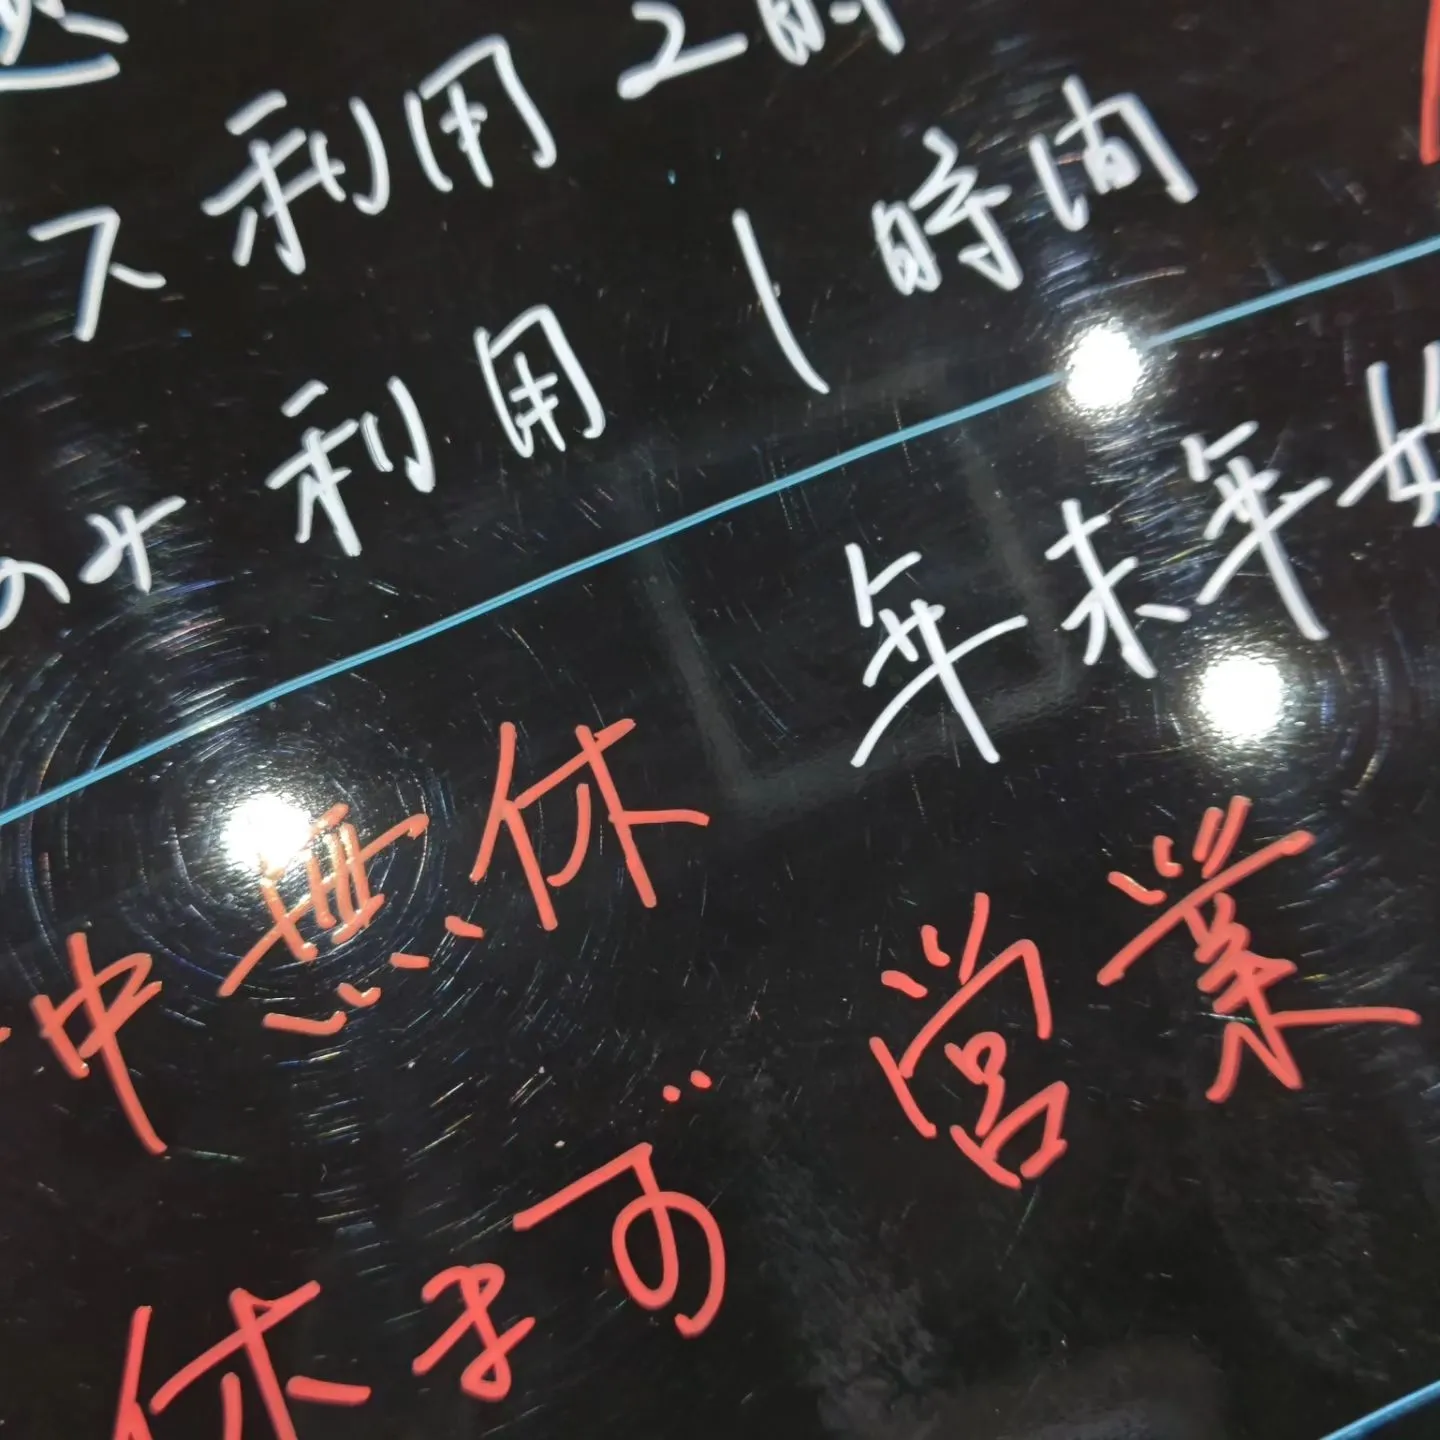 ス利用 2時
のみ利用 1時間
年末年始
年中無休
休まず営業